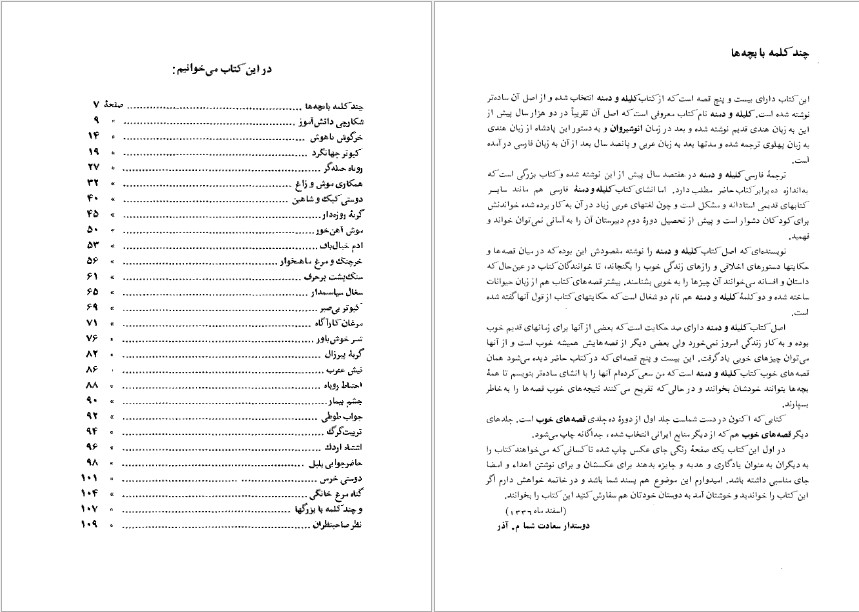 چند کلمه با بچه‌ها
این کتاب دارای بیست و پنج قصه است که از کتاب کلیله و دمنه انتخاب شده و از اصل آن ساده‌تر
نوشته شده است. کلیله و دمنه نام کتاب معروفی است که اصل آن تقریباً در دو هزار سال پیش از
این به زبان هندی قدیم نوشته شده و بعد در زمان انوشیروان و به دستور این پادشاه از زبان هندی
به زبان پهلوی ترجمه شده و مدتها بعد به زبان عربی و پانصد سال بعد از آن به زبان فارسی در آمده
است.
ترجمهٔ فارسی کلیله و دمنه در هفتصد سال پیش از این نوشته شده و کتاب بزرگی است که
به‌اندازه ده برابر کتاب حاضر مطلب دارد. اما انشای کتاب کلیله و دمنهٔ فارسی هم مانند سایر
کتابهای قدیمی استادانه و مشکل است و چون لغتهای عربی زیاد در آن به کار برده شده خواندنش
برای کودکان دشوار است و پیش از تحصیل دورهٔ دوم دبیرستان آن را به آسانی نمی‌توان خواند و
فهمید.
نویسنده‌ای که اصل کتاب کلیله و دمنه را نوشته مقصودش این بوده که در میان قصه‌ها و
حکایتها دستورهای اخلاقی و رازهای زندگی خوب را بگنجاند، تا خوانندگان کتاب در عین حال که
داستان و افسانه می‌خوانند آن چیزها را به خوبی بشناسند. بیشتر قصه‌های کتاب هم از زبان حیوانات
ساخته شده و دو کلمهٔ کلیله و دمنه هم نام دو شغال است که حکایتهای کتاب از قول آنها گفته شده
است.
اصل کتاب کلیله و دمنه دارای صد حکایت است که بعضی از آنها برای زمانهای قدیم خوب
بوده و به کار زندگی امروز نمی‌خورد ولی بعضی دیگر از قصه‌هایش همیشه خوب است و از آنها
می‌توان چیزهای خوبی یاد گرفت. این بیست و پنج قصه‌ای که در کتاب حاضر دیده می‌شود همان
قصه‌های خوب کتاب کلیله و دمنه است که من سعی کرده‌ام آنها را با انشای ساده‌تر بنویسم تا همهٔ
بچه‌ها بتوانند خودشان بخوانند و در حالی که تفریح می‌کنند نتیجه‌های خوب قصه‌ها را به خاطر
بسپارند.
کتابی که اکنون در دست شماست جلد اول از دورهٔ ده جلدی قصه‌های خوب است. جلدهای
دیگر قصه‌های خوب هم که از دیگر منابع ایرانی انتخاب شده، جداگانه چاپ می‌شود.
در اول این کتاب یک صفحهٔ رنگی جای عکس چاپ شده تا کسانی که می‌خواهند کتاب را
به دیگران به عنوان یادگاری و هدیه و جایزه بدهند برای عکسشان و برای نوشتن اهداء و امضا
جای مناسبی داشته باشد. امیدوارم این موضوع هم پسند شما باشد و در خاتمه خواهش دارم اگر
این کتاب را خواندید و خوشتان آمد به دوستان خودتان هم سفارش کنید این کتاب را بخوانند.
(اسفند ماه ۱۳۳۶)
دوستدار سعادت شما م. آذر
در این کتاب می‌خوانیم:
چند کلمه با بچه‌ها صفحهٔ ۷
شکارچی دانش‌آموز » ۹
خرگوش باهوش » ۱۴
کبوتر جهانگرد » ۱۹
روباه حیله‌گر » ۲۷
همکاری موش و زاغ » ۳۲
دوستی کبک و شاهین » ۴۰
گربهٔ روزه‌دار » ۴۵
موش آهن‌خور » ۵۰
آدم خیال‌باف » ۵۳
خرچنگ و مرغ ماهیخوار » ۵۶
سنگ‌پشت پرحرف » ۶۱
شغال سیاستمدار » ۶۵
کبوتر بی‌صبر » ۶۹
مرغان کارآگاه » ۷۱
شیر خوش‌باور » ۷۶
گربهٔ پیرزال » ۸۲
نیش عقرب » ۸۶
احتیاط روباه » ۸۸
چشم بیمار » ۹۰
جواب طوطی » ۹۲
تربیت گرگ » ۹۴
اشتباه اردک » ۹۶
حاضرجوابی بلبل » ۹۸
دوستی خرس » ۱۰۱
گناه مرغ خانگی » ۱۰۴
و چند کلمه با بزرگها » ۱۰۷
نظر صاحبنظران » ۱۰۹